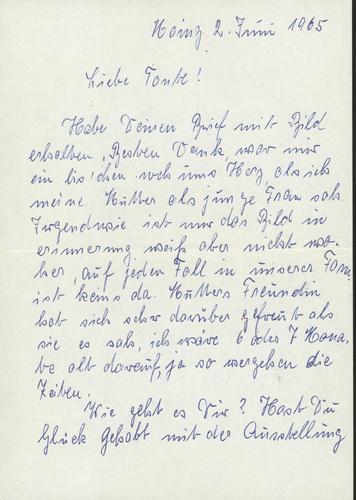 Mainz 2. Juni 1965
Liebe Tante!
Habe Deinen Brief mit Bild
erhalten, Besten Dank war mir
ein bis'chen weh ums Herz als ich
meine Mutter als junge Frau sah.
Irgendwie ist mir das Bild in
erinnerung weiß aber nicht wo-
her auf jeden Fall in unserer Fam.
ist keins da. Mutters Freundin
hat sich sehr darüber gefreut als
sie es sah, ich wäre 6 oder 7 Mona-
te alt darauf, ja so vergehen die
Zeiten.
Wie geht es Dir? Hast Du
Glück gehabt mit der Ausstellung